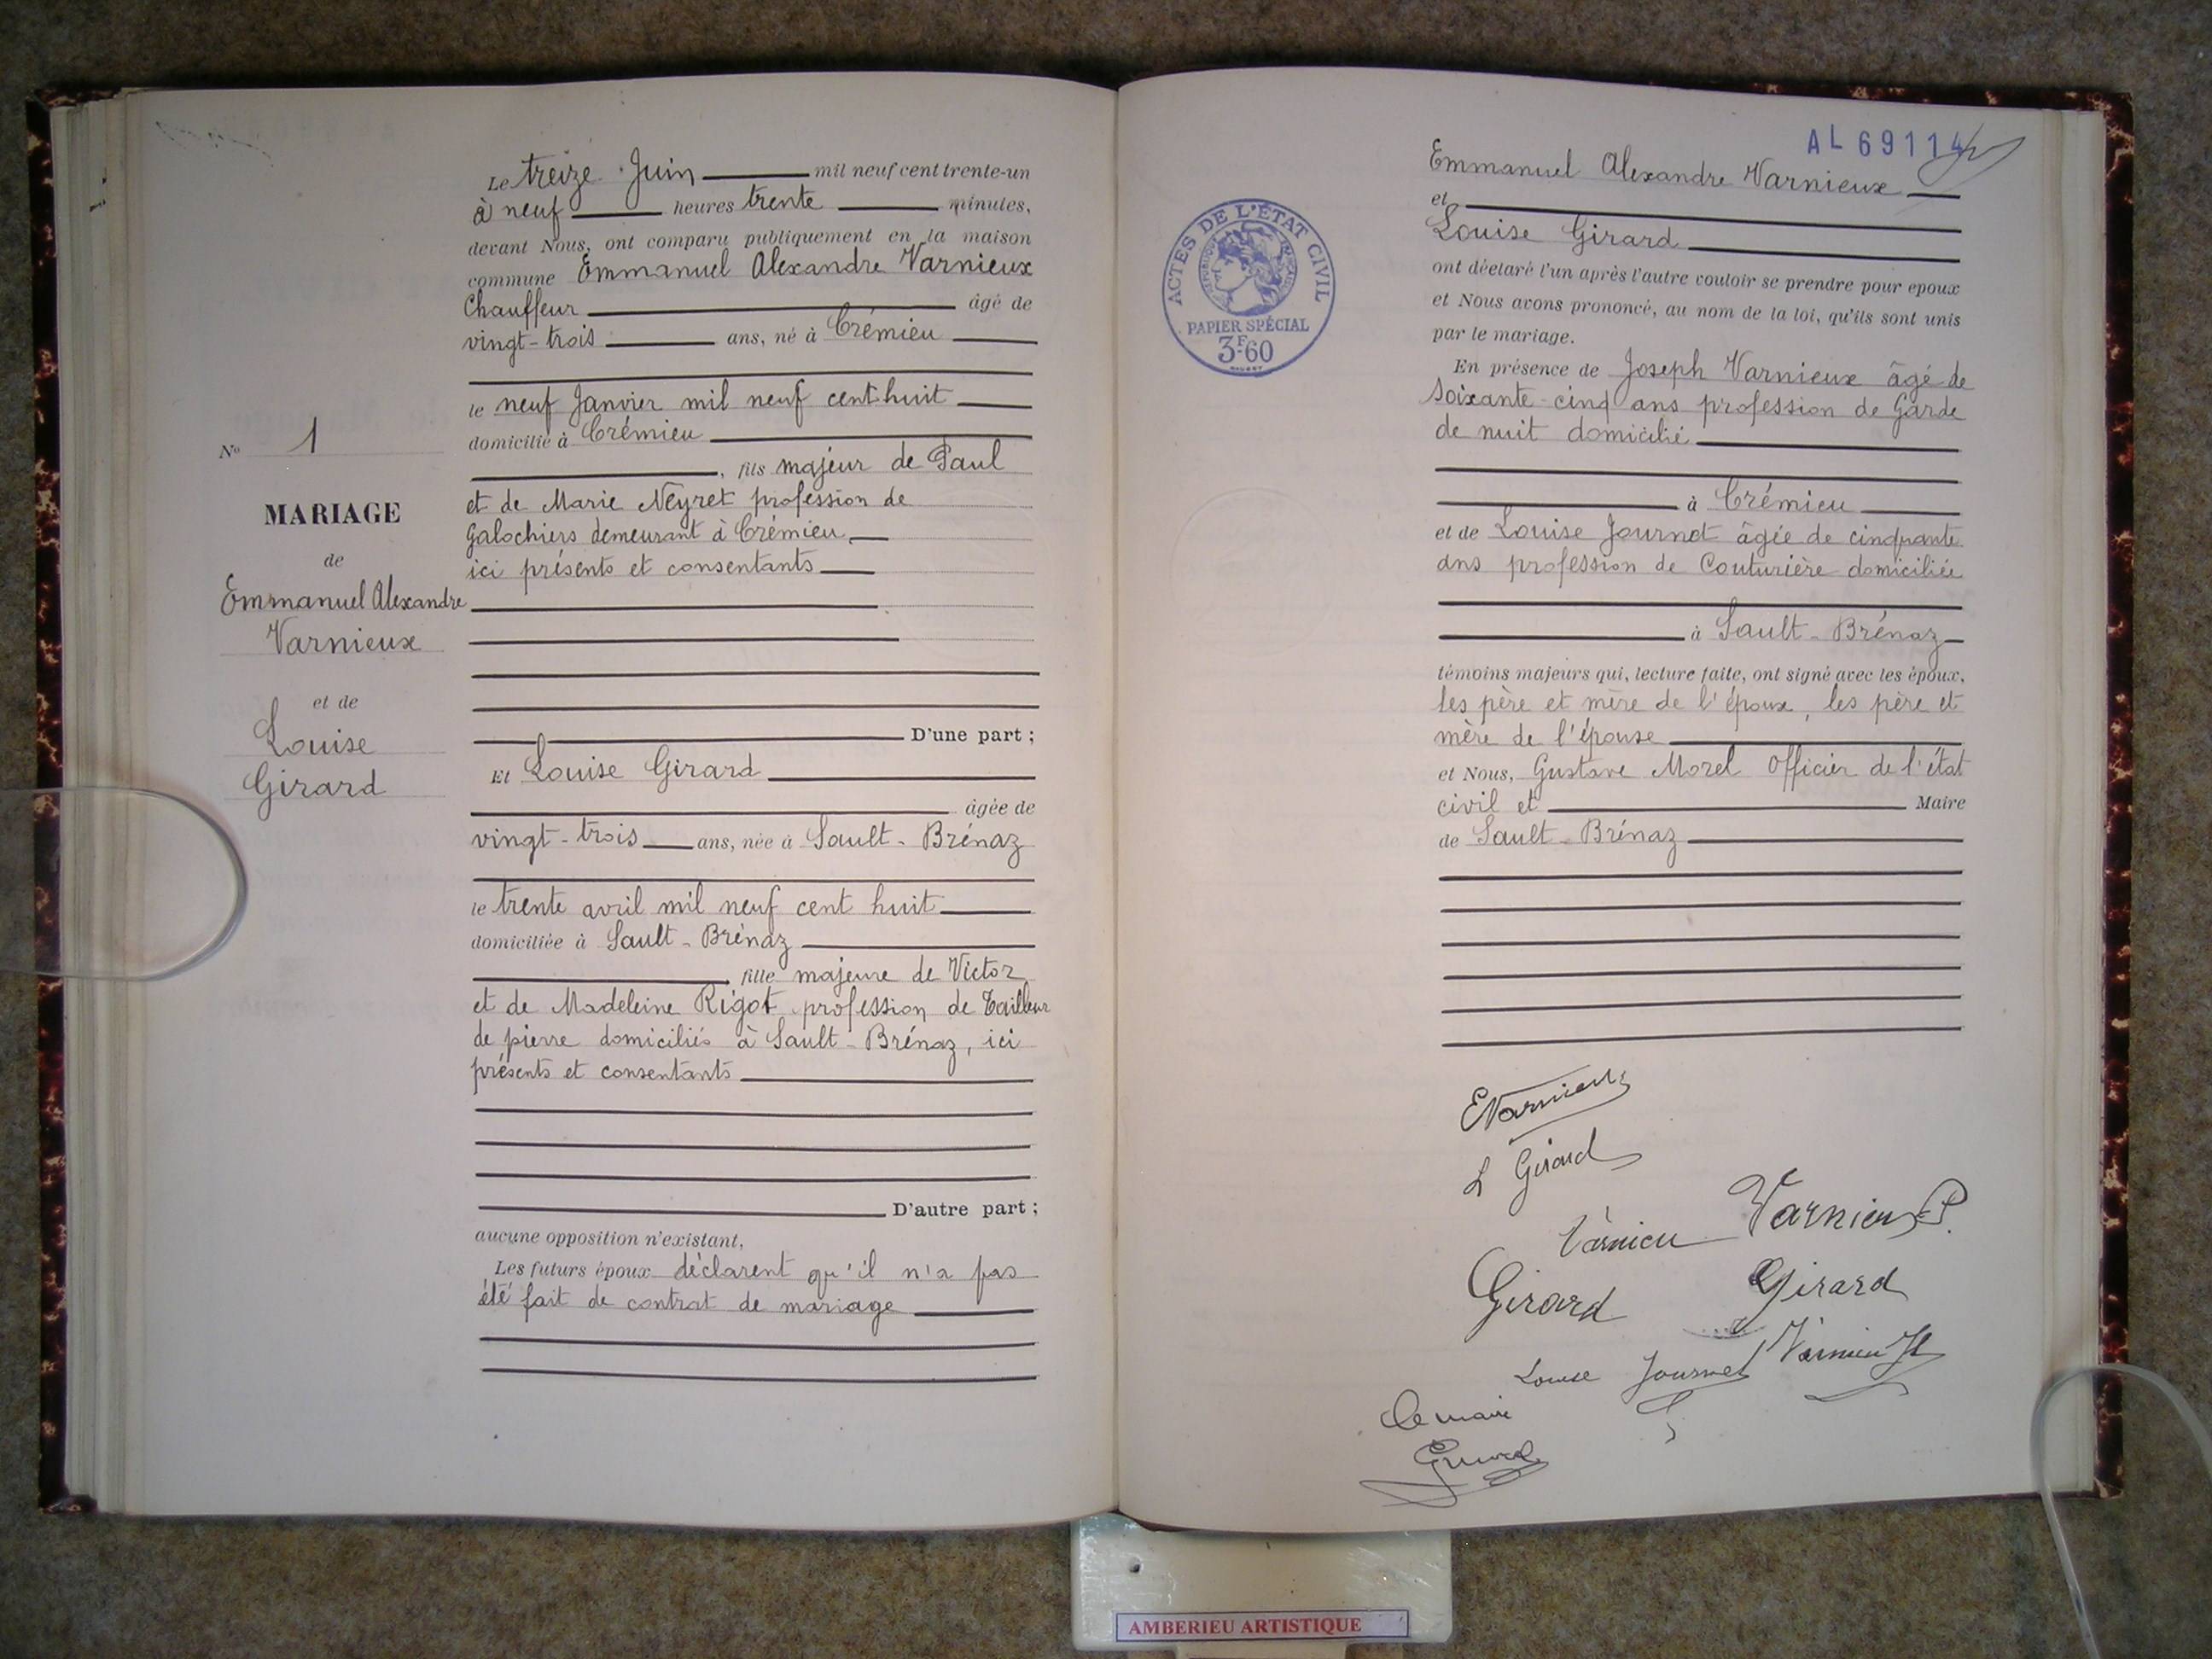 Le treize Juin mil neuf cent trente-un
à neuf heures trente minutes,
devant Nous, ont comparu publiquement en la maison
commune Emmanuel Alexandre Varnieux
Chauffeur âgé de
vingt-trois ans, né à Crémieu
le neuf Janvier mil neuf cent huit
domicilié à Crémieu
, fils majeur de Paul
et de Marie Neyret profession de
Galochiers demeurant à Crémieu,
ici présents et consentants
D'une part ;
Et Louise Girard
âgée de
vingt-trois ans, née à Sault-Brénaz
le trente avril mil neuf cent huit
domiciliée à Sault-Brénaz
fille majeure de Victor
et de Madeleine Rigot profession de Tailleur
de pierre domiciliés à Sault-Brénaz, ici
présents et consentants
D'autre part ;
aucune opposition n'existant,
Les futurs époux déclarent qu'il n'a pas
été fait de contrat de mariage
No 1
MARIAGE
de
Emmanuel Alexandre
Varnieux
et de
Louise
Girard
AL 69114
Emmanuel Alexandre Varnieux
et
Louise Girard
ont déclaré l'un après l'autre vouloir se prendre pour epoux
et Nous avons prononcé, au nom de la loi, qu'ils sont unis
par le mariage.
En présence de Joseph Varnieux âgé de
soixante-cinq ans profession de Garde
de nuit domicilié
à Crémieu
et de Louise Journet âgée de cinquante
ans profession de Couturière domiciliée
à Sault-Brénaz
témoins majeurs qui, lecture faite, ont signé avec les époux,
les père et mère de l'époux, les père et
mère de l'épouse
et Nous, Gustave Morel Officier de l'état
civil et Maire
de Sault-Brénaz
ACTES DE L'ÉTAT CIVIL
RÉPUBLIQUE FRANÇAISE
PAPIER SPÉCIAL
3F-60
EVarnieux
L Girard
Varnieu
Varnieux P.
Girard
Girard
Louise Journet
Varnieu
Le maire
AMBERIEU ARTISTIQUE